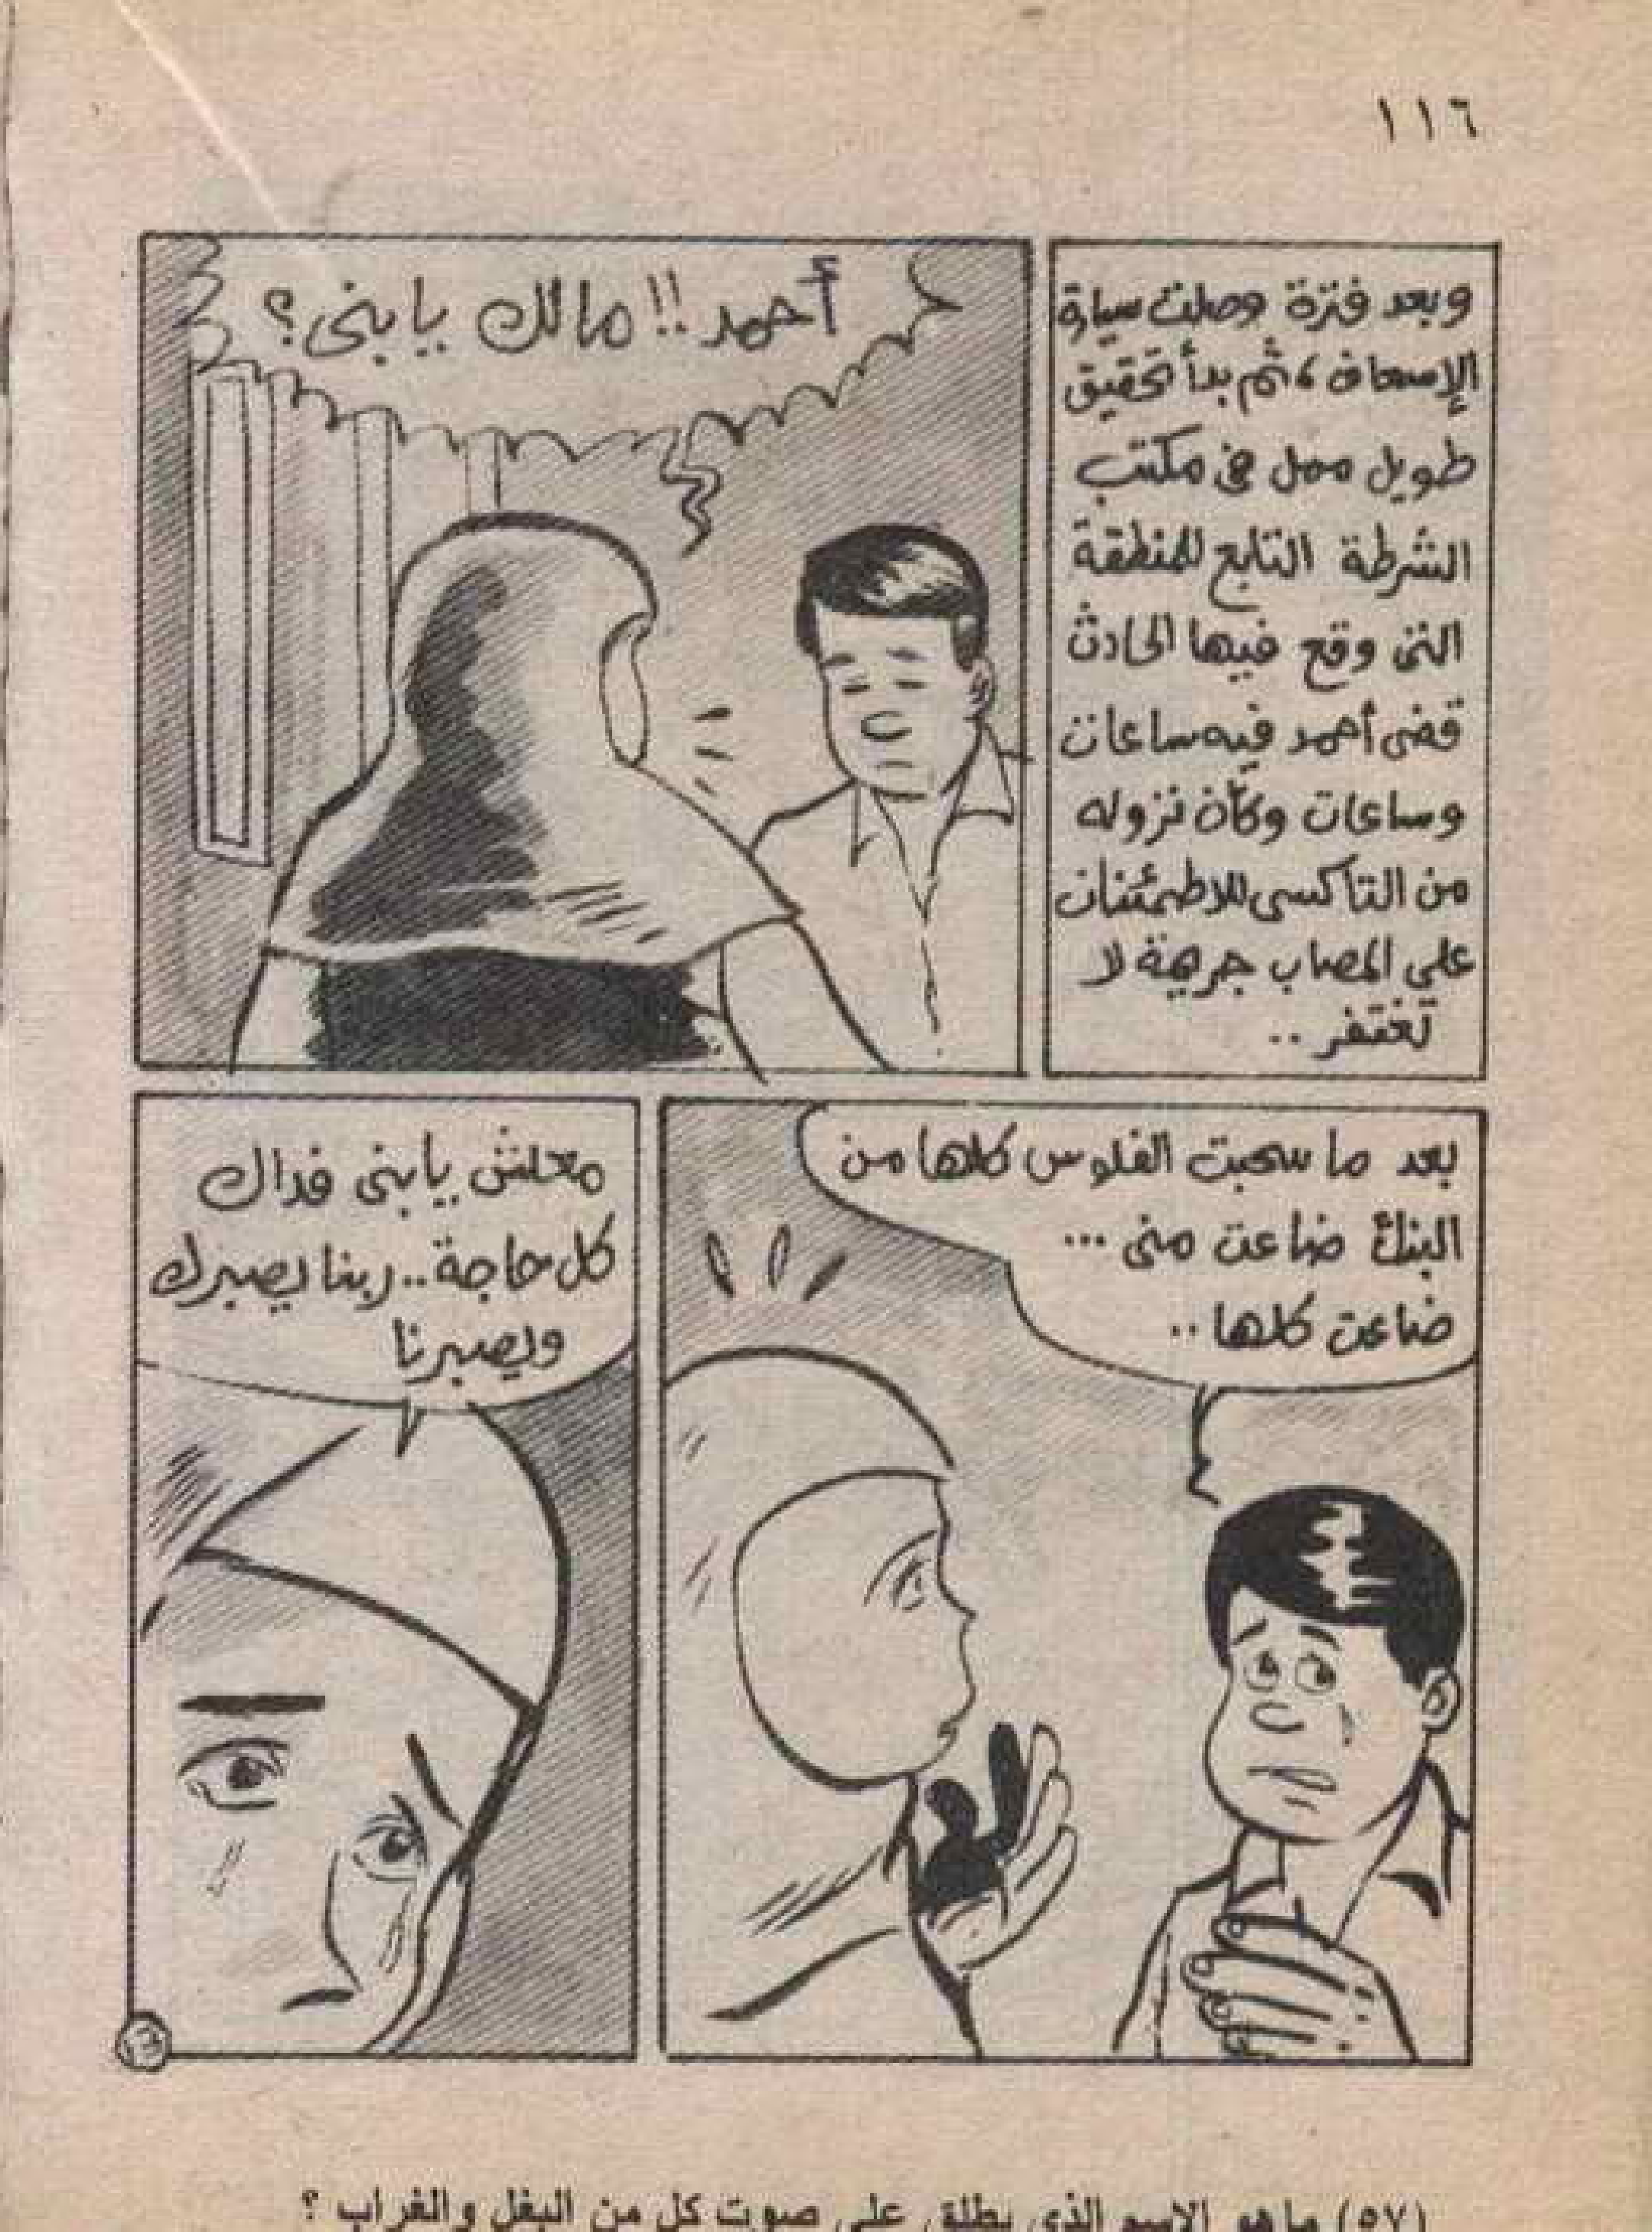 ١١٦
وبعد فترة وصلت سيارة
الإسعاف، ثم بدأ تحقيق
طويل ممل فى مكتب
الشرطة التابع للمنطقة
التى وقع فيها الحادث
قضى أحمد فيه ساعات
وساعات وكأن نزوله
من التاكسى للاطمئنان
على المصاب جريمة لا
تغتفر ..
أحمد!! مالك يا بنى؟
بعد ما سحبت الفلوس كلها من
البنك ضاعت منى ...
ضاعت كلها ..
معلش يا بنى فداك
كل حاجة.. ربنا يصبرك
ويصبرنا
١٣
(٥٧) ما هو الاسم الذى يطلق على صوت كل من البغل والغراب ؟